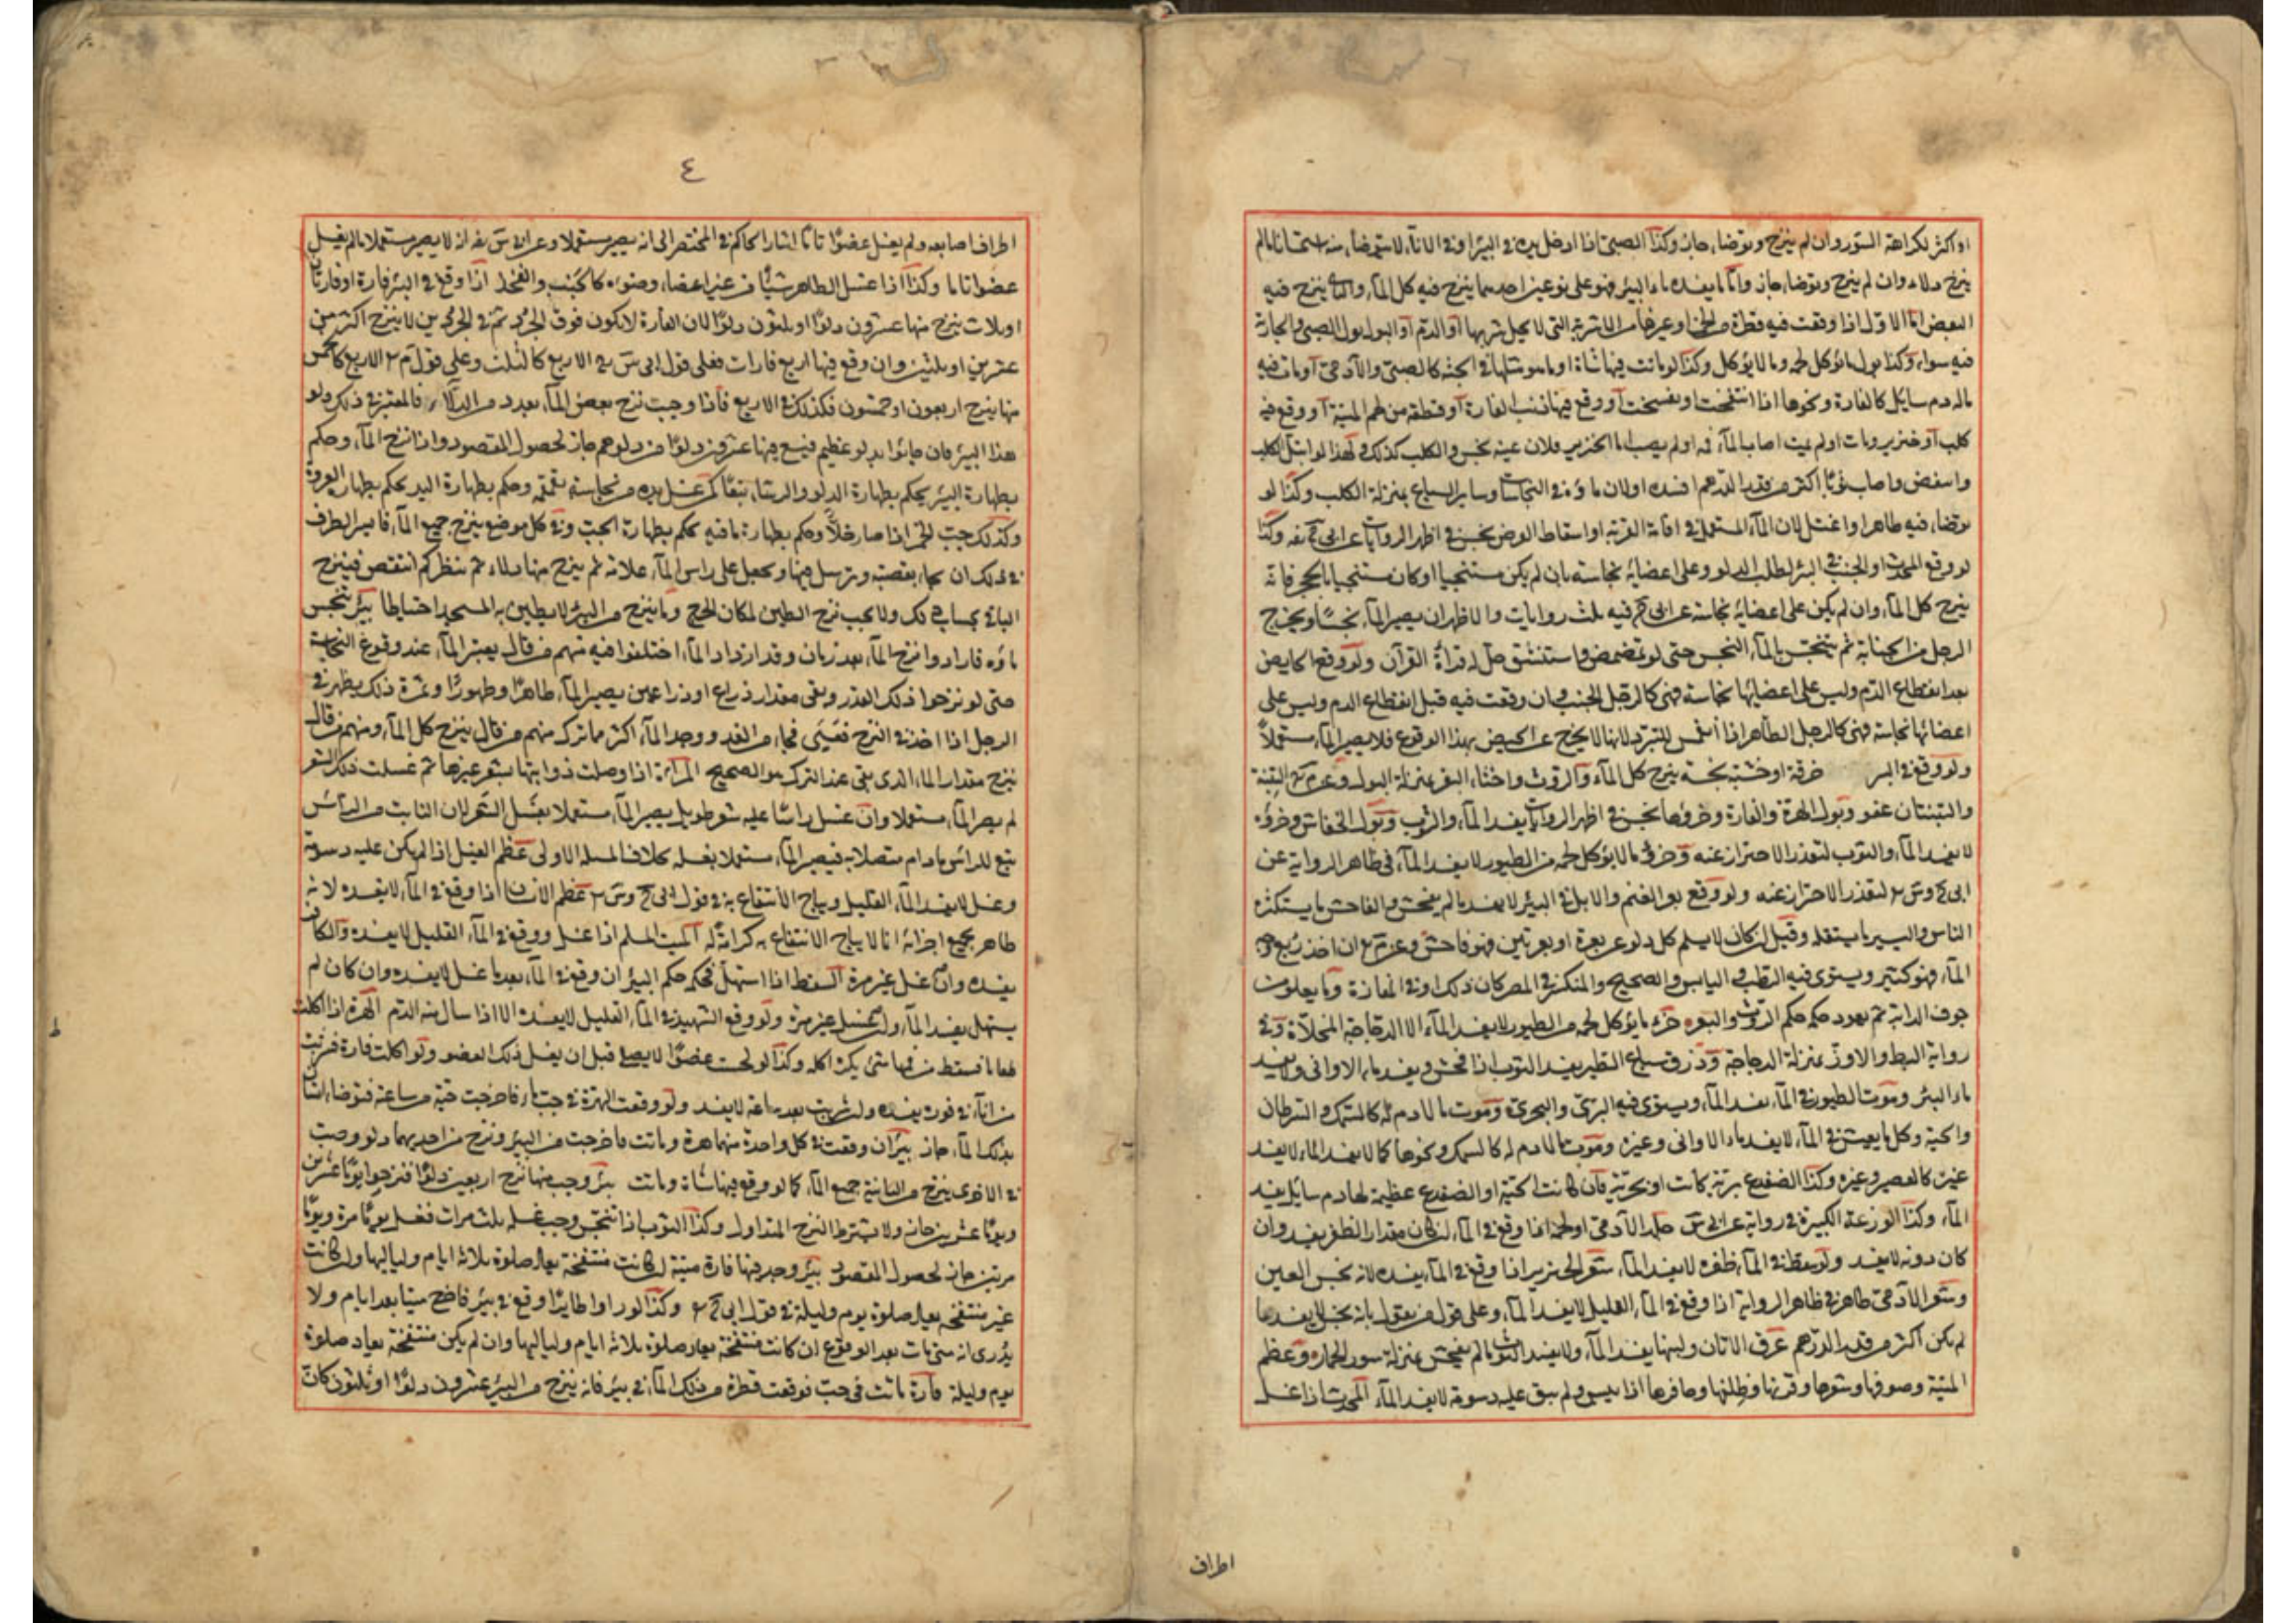 او اكثر لكراهة السؤر وان لم ينزح وتوضاء جاز وكذا الصبى اذا ادخل يده فى البير او فى الاناء لا يتوضاء منه استحسانا مالم
ينزح دلاء وان لم ينزح وتوضاء جاز واما ما يفسد ماء البير فهو على نوعين احدهما ينزح فيه كل الماء والثانى ينزح فيه
البعض اما الاول اذا وقعت فيه قطرة من الخمر او غيرها من الاشربة التى لا يحل شربها او الدم او البول بول الصبى والجارية
فيه سواء وكذا بول ما يؤكل لحمه وما لا يؤكل وكذا لو ماتت فيها شاة او ما هو مثلها فى الجثة كالصبى والآدمى او مات فيه
ماله دم سايل كالفارة ونحوها اذا انتفخت او تفسخت او وقع فيها ذنب الفارة او قطعة من لحم الميتة او وقع فيه
كلب او خنزير ومات او لم يمت اصاب الماء فمه او لم يصب اما الخنزير فلان عينه نجس والكلب كذلك ولهذا لو ابتل الكلب
وانتفض واصاب ثوبا اكثر من قدر الدرهم افسده اولان ماؤه فى النجاسات وساير السباع بمنزلة الكلب وكذا لو
توضاء فيه طاهر او اغتسل لان الماء المستعمل فى اقامة القربة او اسقاط الفرض نجس فى اظهر الروايات عن ابى ح رح وكذا
لو وقع المحدث او الجنب فى البئر لطلب الدلو وعلى اعضائه نجاسة بان لم يكن مستنجيا او كان مستنجيا بالحجر فانه
ينزح كل الماء وان لم يكن على اعضائه نجاسة عن ابى ح فيه ثلث روايات والاظهر ان يصير الماء نجسا ويخرج
الرجل من الجنابة ثم يتنجس بالماء النجس حتى لو تمضمض واستنشق حل له قراءة القرآن ولو وقع الحايض
بعد انقطاع الدم وليس على اعضائها نجاسة فهى كالرجل الجنب وان وقعت فيه قبل انقطاع الدم وليس على
اعضائها نجاسة فهى كالرجل الطاهر اذا انغمس للتبرد لانها لا يخرج عن الحيض بهذا الوقوع فلا يصير الماء مستعملا
ولو وقع فى البير خرقة او خشبة نجسة ينزح كل الماء والروث واخثاء البقر بمنزلة البول وعن م التبنة
والتبنتان عفو وبول الهرة والفارة وخرؤها نجس فى اظهر الروايات يفسد الماء والثوب وبول الخفاش وخرؤه
لا يفسد الماء والثوب لتعذر الاحتراز عنه وخرؤ ما لا يؤكل لحمه من الطيور لا يفسد الماء فى ظاهر الرواية عن
ابى ح وس لتعذر الاحتراز عنه ولو وقع بعر الغنم والابل فى البير لا يفسد ما لم يفحش والفاحش ما يستكثره
الناس واليسير ما يستقله وقيل ان كان لا يسلم كل دلو عن بعرة او بعرتين فهو فاحش وعن م ان اخذ ربع وجه
الماء فهو كثير ويستوى فيه الرطب واليابس والصحيح والمنكسر فى المصر كان ذلك او فى المفازة وما يعلو من
جوف الدابة ثم يعود حكمه حكم الروث والبعر خرء ما يؤكل لحمه من الطيور لا يفسد الماء الا الدجاجة المخلاة وفى
رواية البط والاوز بمنزلة الدجاجة وذرق سباع الطير يفسد الثوب اذا فحش ويفسد ماء الاوانى ولا يفسد
ماء البئر وموت الطيور فى الماء يفسد الماء ويستوى فيه البرى والبحرى وموت ما لا دم له كالسمك والسرطان
والحية وكل ما يعيش فى الماء لا يفسد ماء الاوانى وغيره وموت ما لا دم له كالسمك ونحوها كما لا يفسد الماء لا يفسد
غيره كالعصير وغيره وكذا الضفدع برية كانت او بحرية فان كانت الحية او الضفدع عظيمة لها دم سايل يفسد
الماء وكذا الوزغة الكبيرة فى رواية عن ابى س جلد الآدمى او لحمه اذا وقع فى الماء ان كان مقدار الظفر يفسد وان
كان دونه لا يفسد ولو سقط فى الماء ظفره لا يفسد الماء شعر الخنزير اذا وقع فى الماء يفسده لانه نجس العين
وشعر الآدمى طاهر فى ظاهر الرواية اذا وقع فى الماء القليل لا يفسد الماء وعلى قول من يقول بانه نجس لا يفسد ما
لم يكن اكثر من قدر الدرهم عرق الاتان ولبنها يفسد الماء ولا يفسد الثوب ما لم يفحش بمنزلة سور الحمار وعظم
الميتة وصوفها وشعرها وقرنها وظلفها وحافرها اذا يبس ولم يبق عليه دسومة لا يفسد الماء المحدث اذا غسل
اطراف
٤
اطراف اصابعه ولم يغسل عضوا تاما اشار الحاكم فى المختصر الى انه يصير مستعملا وعن ابى س رح انه لا يصير مستعملا ما لم يغسل
عضوا تاما وكذا اذا غسل الطاهر شيئا من غير اعضاء وضوءه كالجنب والفخذ اذا وقع فى البئر فارة او فارتان
او ثلاث ينزح منها عشرون دلوا او ثلثون دلوا لان الفارة لا تكون فوق الجرذ ثم فى الجرذين لا ينزح اكثر من
عشرين او ثلثين وان وقع فيها اربع فارات فعلى قول ابى س رح الاربع كالثلث وعلى قول م رح الاربع كالخمس
منها ينزح اربعون او خمسون فكذلك فى الاربع فاذا وجبت نزح بعض الماء بعدد من الدلاء فالمعتبر فى ذلك دلو
هذا البير فان جاءوا بدلو عظيم فيسع فيها عشرون دلوا من دلوهم جاز لحصول المقصود واذا نزح الماء وحكم
بطهارة البير يحكم بطهارة الدلو والرشاء تبعا كمن غسل يده من نجاسة بقمقمة وحكم بطهارة اليد يحكم بطهارة العروة
وكذلك جب الخمر اذا صار خلا وحكم بطهارة ما فيه يحكم بطهارة الجب وفى كل موضع ينزح جميع الماء فايسر الطرف
فى ذلك ان يجاء بقصبة وترسل فيها ويجعل على راس الماء علامة ثم ينزح منها دلاء ثم ينظر كم انتقص فينزح
الباقى بحساب ذلك ولا يجب نزح الطين لمكان الحرج وما ينزح من البير لا يطين به المسجد احتياطا بئر تنجس
ماؤه فارادوا نزح الماء بعد زمان وقد ازداد الماء اختلفوا فيه منهم من قال يعتبر الماء عند وقوع النجاسة
حتى لو نزحوا ذلك القدر وبقى مقدار ذراع او ذراعين يصير الماء طاهرا وطهورا وثمرة ذلك يظهر فى
الرجل اذا اخذ فى النزح فعيى فجاء من الغد ووجد الماء اكثر مما تركه منهم من قال ينزح كل الماء ومنهم من قال
ينزح مقدار الماء الذى بقى عند الترك هو الصحيح المراة اذا وصلت ذوايبها بشعر غيرها ثم غسلت ذلك الشعر
لم يصر الماء مستعملا وان غسل راسا عليه شعر طويل يصير الماء مستعملا بغسل الشعر لان النابت من الراس
تبع للراس ما دام متصلا به فيصير الماء مستعملا بغسله بخلاف المسئلة الاولى عظم الفيل اذا لم يكن عليه دسومة
وغسل لا يفسد الماء القليل ويباح الانتفاع به فى قول ابى ح وس رح عظم الانسان اذا وقع فى الماء لا يفسده لانه
طاهر بجميع اجزائه انما لا يباح الانتفاع به كرامة له الميت المسلم اذا غسل ووقع فى الماء القليل لا يفسده والكافر
يفسده وان غسل غير مرة السقط اذا استهل فحكمه حكم البئر ان وقع فى الماء بعد ما غسل لا يفسده وان كان لم
يستهل يفسد الماء وان غسل غير مرة ولو وقع الشهيد فى الماء القليل لا يفسده الا اذا سال منه الدم الهرة اذا اكلت
طعاما فسقط من فمها شئ يكره اكله وكذا لو لحست عضوا لا يصلى قبل ان يغسل ذلك العضو ولو اكلت فارة فشربت
من اناء فى فوره يفسده ولو شربت بعد ساعة لا يفسد ولو وقعت الهرة فى جب ماء فاخرجت حية من ساعته فتوضاء انسان
بذلك الماء جاز بيران وقعت فى كل واحدة منهما هرة وماتت فاخرجت من البير ونزح من احديهما دلو وصب
فى الاخرى ينزح من الثانية جميع الماء كما لو وقع فيها شاة وماتت بئر وجب منها نزح اربعين دلوا فنزحوا يوما عشرين
ويوما عشرين جاز ولا يشترط النزح المتداول وكذا الثوب اذا تنجس وجب غسله ثلث مرات فغسل يوما مرة ويوما
مرتين جاز لحصول المقصود بير وجد فيها فارة ميتة ان كانت منتفخة يعاد صلوة ثلاثة ايام ولياليها وان كانت
غير منتفخة يعاد صلوة يوم وليلة فى قول ابى ح رح وكذا لو راوا طايرا وقع فى بير فاخرج ميتا بعد ايام ولا
يدرى انه متى مات بعد الوقوع ان كانت منتفخة يعاد صلوة ثلاثة ايام ولياليها وان لم يكن منتفخة يعاد صلوة
يوم وليلة فارة ماتت فى جب فوقعت قطرة من ذلك الماء فى بير فانه ينزح من البير عشرون دلوا او ثلثون كان
ط